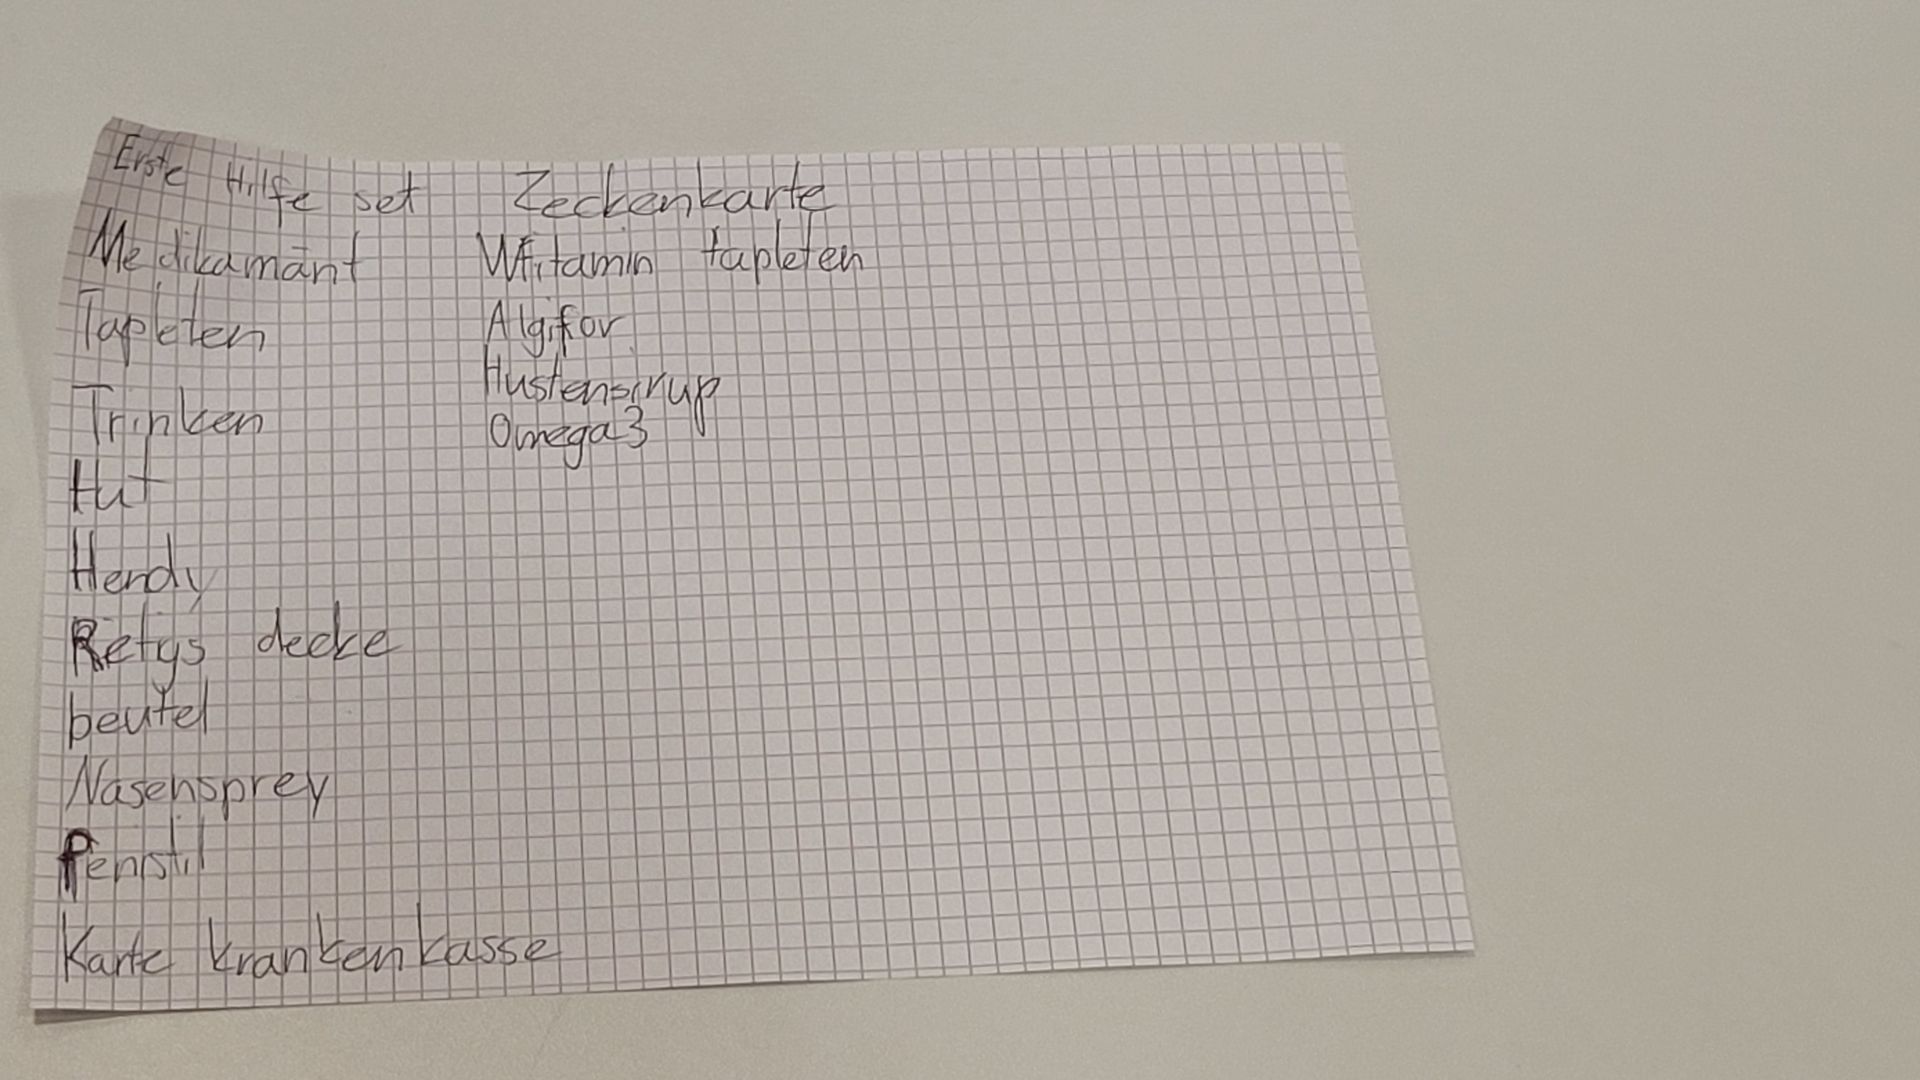 Erste Hilfe set
Medikamänt
Tapleten
Trinken
Hut
Hendy
Retgs decke
beutel
Nasensprey
Fenistil
Karte krankenkasse
Zeckenkarte
Witamin tapleten
Algifor
Hustensirup
Omega3